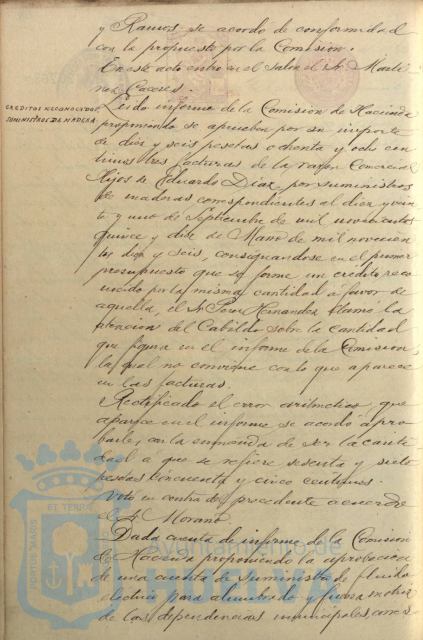 y Ramos se acordó de conformidad
con la propuesto por la Comision.
En este acto entro en el Salon el Sr. Marti-
nez Caceres.
CREDITOS RECONOCIDOS
SUMINISTROS DE MADERA
Leido informe de la Comision de Hacienda
proponiendo se aprueben por su importe
de diez y seis pesetas ochenta y ocho cen-
timos tres facturas de la razon Comercial
Hijos de Eduardo Diaz por suministros
de maderas correspondientes al diez y vein-
te y uno de Septiembre de mil novecientos
quince y diez de Marzo de mil novecien-
tos diez y seis, consignandose en el primer
presupuesto que se forme un credito reco-
nocido por la misma cantidad a favor de
aquella, el Sr. Perez Hernandez llamó la
atencion del Cabildo sobre la cantidad
que figura en el informe de la Comision,
la qual no convique con lo que aparece
en las facturas.
Rectificado el error aritmetico que
aparece en el informe se acordó apro-
barle, con la enmienda de ser la canti-
dad a que se refiere sesenta y siete
pesetas cincuenta y cinco centimos.
Votó en contra del precedente acuerdo
el Sr. Morano.
Dada cuenta de informe de la Comision
de Hacienda proponiendo la aprobacion
de una cuenta de suministro de fluido
electrico para alumbrado y fuerza motriz
de las dependencias municipales, corres-
ET TERRÆ
PORTUS MARIS
Ayuntamiento de